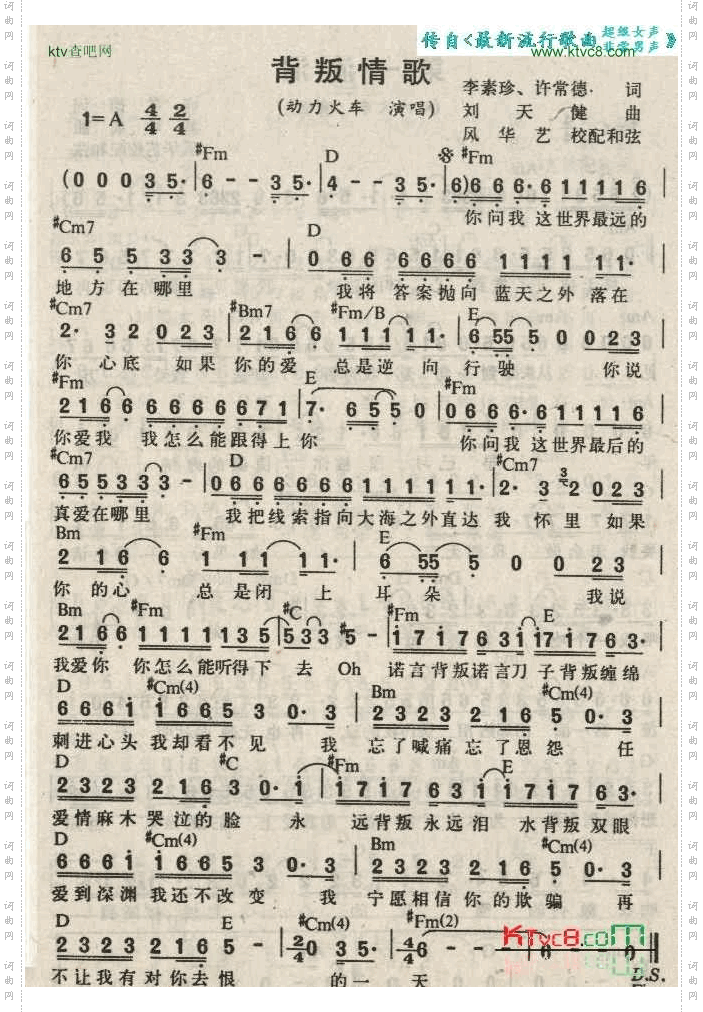 ktv查吧网
传自<最新流行歌曲 超级女声 非常男声 》
www.ktvc8.com
背叛情歌
(动力火车 演唱)
李素珍、许常德 词
刘天健 曲
风华艺校配和弦
1=A 4/4 2/4
#Fm D #Fm
(0 0 0 3 5· | 6 - - 3 5· | 4 - - 3 5· | 6) 6 6 6·6 1 1 1 1 6 |
你问我 这世界最远的
#Cm7 D
6 5 5 3 3 3 - | 0 6 6 6 6 6 6 1 1 1 1 1 1· |
地方在哪里 我将 答案抛向 蓝天之外 落在
#Cm7 #Bm7 #Fm/B E
2· 3 2 0 2 3 | 2 1 6 6 1 1 1 1 1· | 6 5 5 5 0 0 2 3 |
你 心底 如果 你的爱 总是逆 向 行驶 你说
#Fm E #Fm
2 1 6 6 6 6 6 6 6 7 1 | 7· 6 5 5 0 | 0 6 6 6·6 1 1 1 1 6 |
你爱我 我怎么能跟得上你 你问我 这世界最后的
#Cm7 D #Cm7
6 5 5 3 3 3 - | 0 6 6 6 6 6 6 1 1 1 1 1 1· | 2· 3 2 0 2 3 |
真爱在哪里 我把线索指向大海之外直达 我 怀里 如果
Bm #Fm E
2 1 6 6 1 1 1 1 1 | 6 5 5 5 0 0 2 3 |
你的心 总是闭 上 耳朵 我说
Bm #Fm #C #Fm E
2 1 6 6 1 1 1 1 3 5 | 5 3 3 #5 - | 1 7 1 7 6 3 1 1 7 1 7 6 3 |
我爱你 你怎么能听得下 去 Oh 诺言背叛诺言刀 子背叛缠绵
D #Cm(4) Bm #Cm(4)
6 6 6 1 1 6 6 5 3 0· 3 | 2 3 2 3 2 1 6 5 0· 3 |
刺进心头 我却看不见 我 忘了喊痛忘了恩怨 任
D #C #Fm E
2 3 2 3 2 1 6 3 0· 1 | 1 7 1 7 6 3 1 1 7 1 7 6 3· |
爱情麻木 哭泣的脸 永 远背叛永远泪 水背叛双眼
D #Cm(4) Bm #Cm(4)
6 6 6 1 1 6 6 5 3 0· 3 | 2 3 2 3 2 1 6 5 0· 3 |
爱到深渊 我还不改变 我 宁愿相信你的欺骗 再
D E #Cm(4) #Fm(2)
2 3 2 3 2 1 6 5 - | 2/4 0 3 5· | 4/4 6 - - - | 6 - 0 ‖
不让我有对你去恨 的一 天
D.S.
KTvc8.com
词曲网